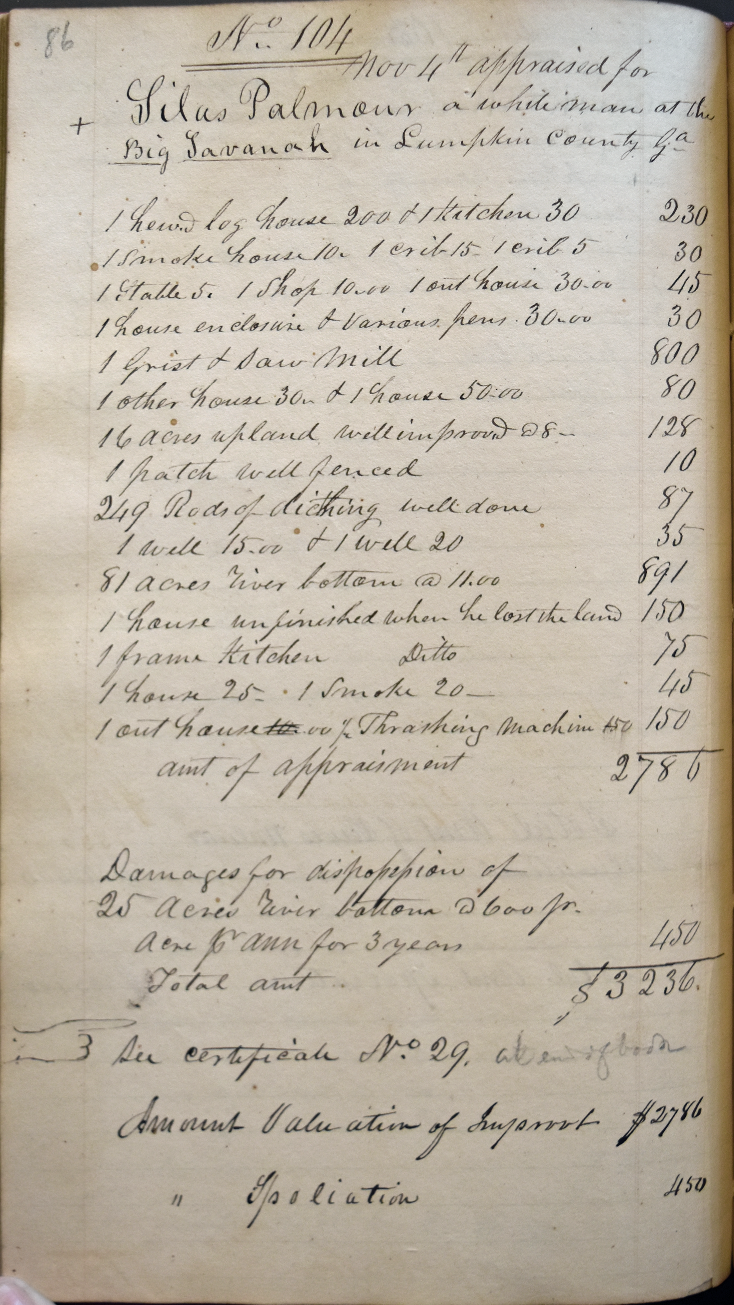 86
No. 104
Nov 4th appraised for
+ Silas Palmour a white man at the
Big Savanah in Lumpkin County Ga
1 hewd log house 200 & 1 Kitchen 30 230
1 Smoke house 10. 1 crib 15- 1 crib 5 30
1 Stable 5. 1 Shop 10.00 1 out house 30.00 45
1 house enclosure & various pens. 30.00 30
1 Grist & Saw Mill 800
1 other house 30.. & 1 house 50.00 80
16 acres upland well improovd @ 8 - 128
1 patch well fenced 10
249 Rods of diching well done 87
1 well 15.00 & 1 well 20 35
81 acres River bottom @ 11.00 891
1 house unfinished when he lost the land 150
1 frame Kitchen Ditto 75
1 house 25- 1 Smoke 20 — 45
1 out house 10.00 Thrashing Machine 150 150
amt of appraisment 2786
Damages for dispossession of
25 Acres River bottom @ 600 pr.
Acre pr ann for 3 years 450
Total amt .. $3236.
See certificate No. 29. at end of book
Amount Valuation of Improvt $2786
" Spoliation 450